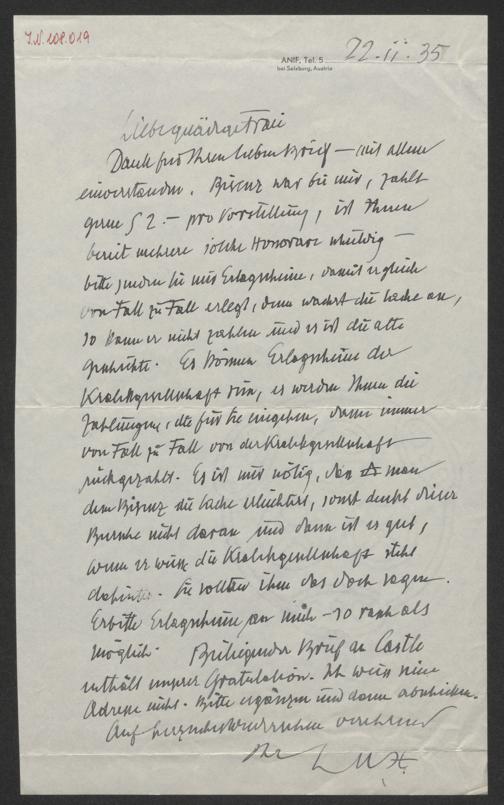 J.N. 108.019
ANIF, Tel. 5
bei Salzburg, Austria
22.ii.35
Liebe gnädige Frau
Dank für Ihren lieben Brief – mit allem
einverstanden. Bisenz war bei mir, zahlt
gerne S 2.– pro Vorstellung, ist Ihnen
bereit mehrere solche Honorare schuldig –
bitte senden Sie mir Erlagscheine, damit er gleich
von Fall zu Fall erlegt, denn wachst die Sache an,
so kann er nicht zahlen und es ist die alte
Geschichte. Es können Erlagscheine der
Kralikgesellschaft sein, es werden Ihnen die
Zahlungen, die für Sie eingehen, dann immer
von Fall zu Fall von der Kralikgesellschaft
rückgezahlt. Es ist nur nötig, dass man
dem Bisenz die Sache erleichtert, sonst denkt dieser
Bursche nicht daran und dann ist es gut,
wenn er weiss die Kralikgesellschaft steht
dahinter. Sie sollten ihm das doch sagen.
Erbitte Erlagscheine an mich – so rasch als
möglich. Beiliegender Brief an Castle
enthält unsere Gratulation. Ich weiss seine
Adresse nicht. Bitte ergänzen und dann abschicken.
Auf herzliches Wiedersehen verehrend
Ihr